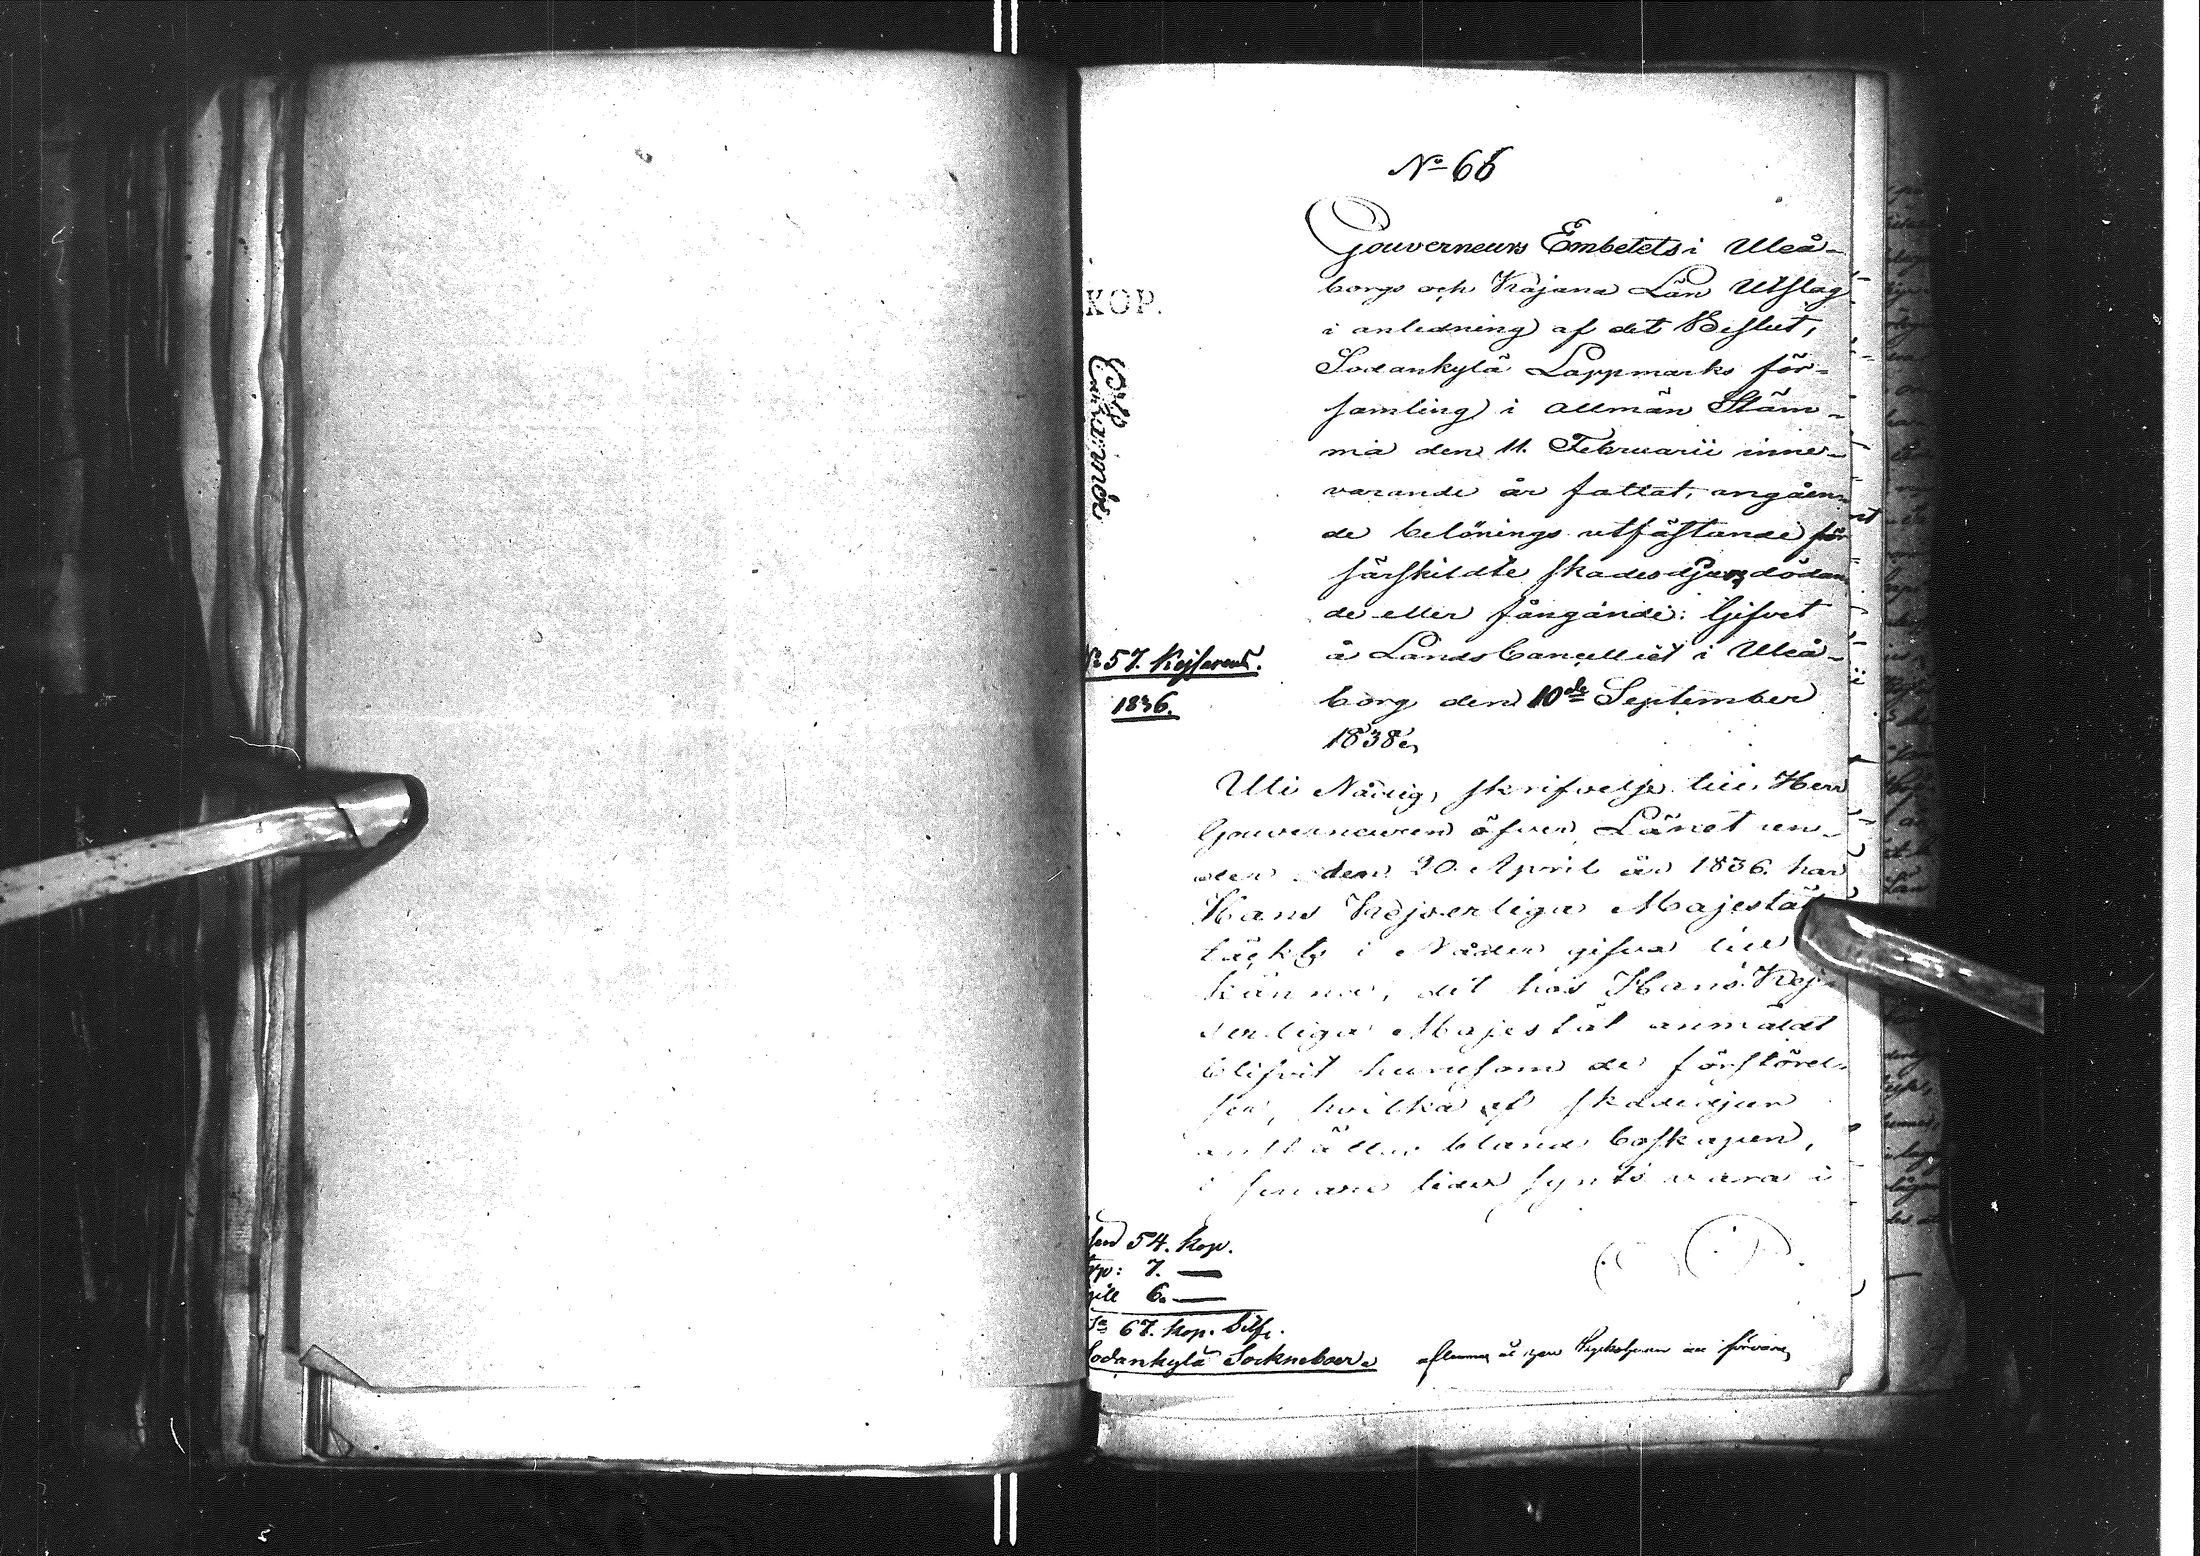 No 66
Gouverneurs Embetets i Uleå-
borgs och Kajana Län Utslag
i anledning af det Beslut,
Sodankylä Lappmarks för-
samling i allmän Stäm-
ma den 11. Februarii inne-
varande år fattat, angåen-
de belönings utfästande för
särskildte skadedjurs dödan
de eller fångande: Gifvet
å Lands Cancelliet i Uleå-
borg den 10de September
1838.
Uti Nådig skrifvelse till Herr
Gouverneuren öfver Länet un-
der den 20 April år 1836 har
Hans Kejserliga Majestät
täckts i Nåder gifva till
känna, det hos Hans Kej-
serliga Majestät anmäldt
blifvit hurusom de förstörel-
ser, hvilka af skadedjur
anställas bland boskapen,
i senare tider synts vara i
KOP.
No 57. Kejserens.
1836.
54. Kop.
7. —
6. —
Sa 67. Kop. Silfr.
Sodankylä Sockneboer.